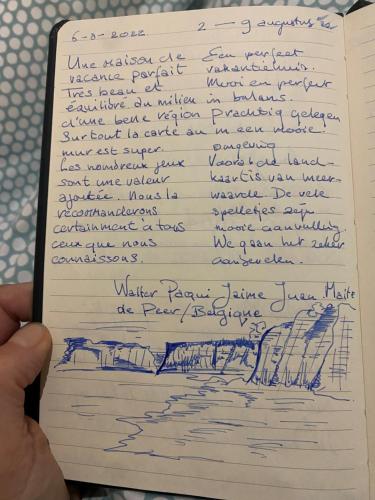 6-8-2022
Une maison de
vacance parfait
Très beau et
équilibre du milieu
d'une belle région
Surtout la carte au
mur est super.
Les nombreux jeux
sont une valeur
ajoutée. Nous la
recommanderons
certainement à tous
ceux que nous
connaissons.
2 — 9 augustus 22
Een perfect
vakantiehuis.
Mooi en perfect
in balans.
Prachtig gelegen
in een mooie
omgeving
Vooral de land-
kaart is van meer-
waarde. De vele
spelletjes zijn
mooie aanvulling.
We gaan het zeker
aanbevelen.
Walter Paqui Jaime Juan Maite
de Peer/Belgique